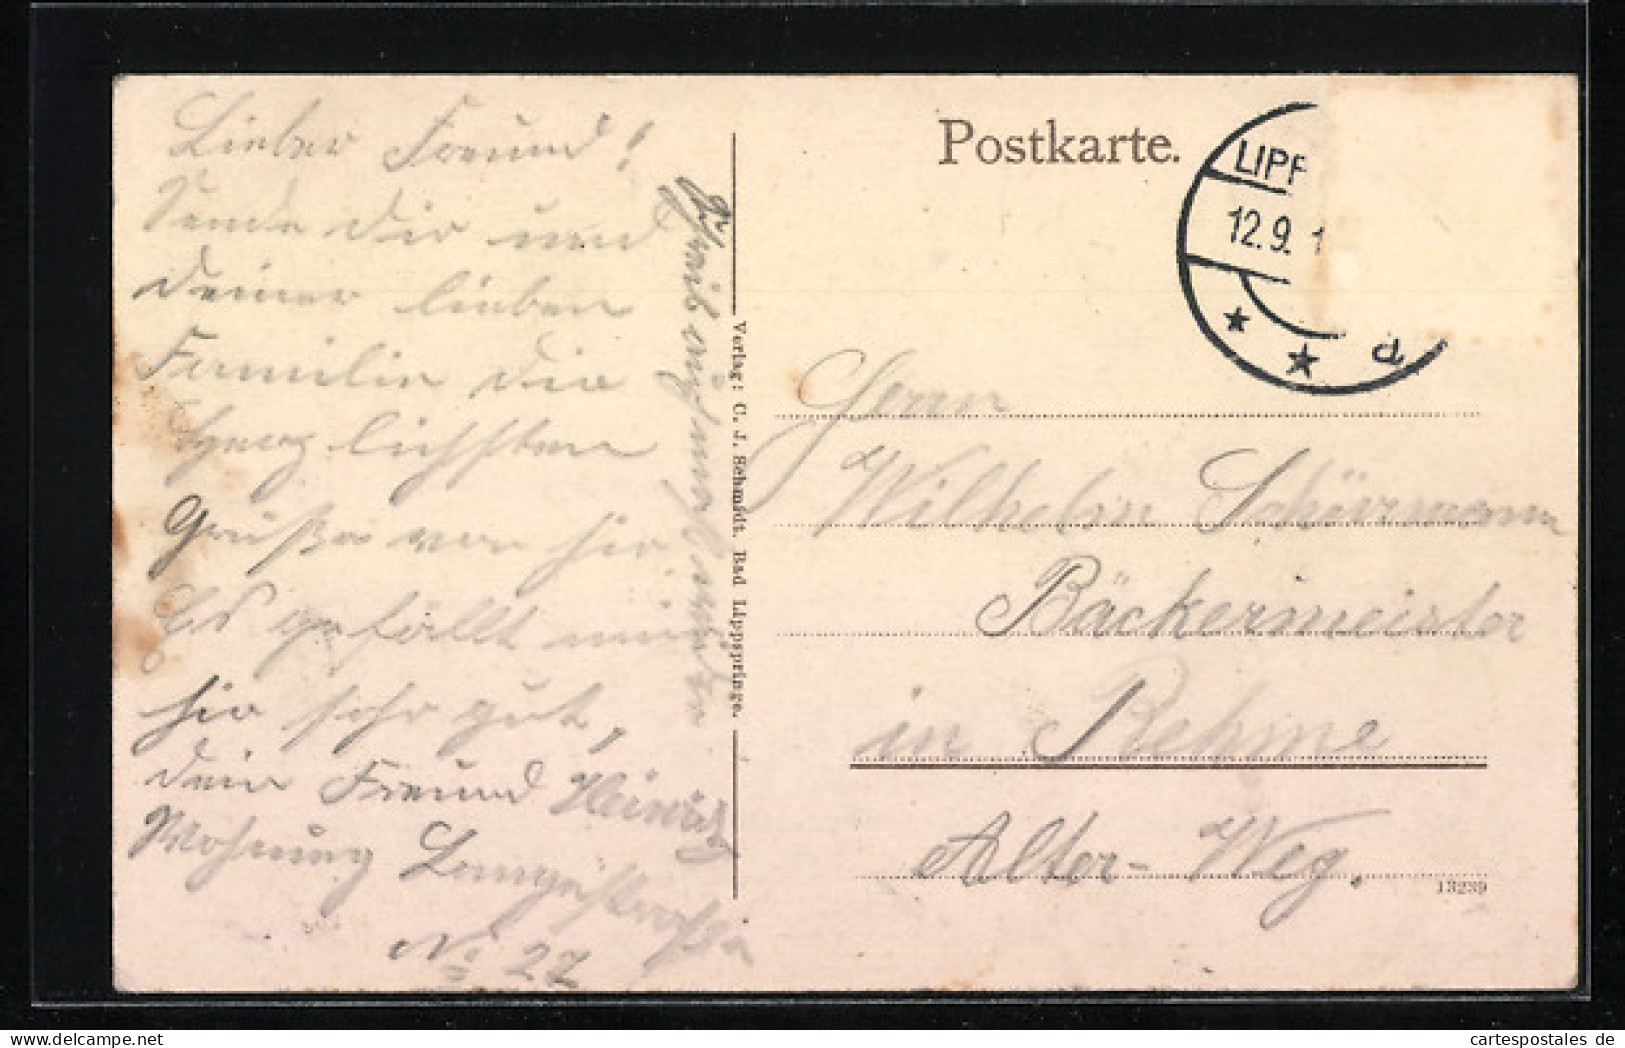 Lieber Freund!
Sende dir und
deiner lieben
Familie die
herzlichsten
Grüße von hir
Es gefällt mir
hir sehr gut,
dein Freund Heinrich
Wohnung Langestraße
No 27
Schreib auch mahl wieder
Verlag: C. J. Schmidt, Bad Lippspringe.
Postkarte.
LIPP
12.9. 1
d
Herrn
Wilhelm Schürmann
Bäckermeister
in Rehme
Alter-Weg.
13239
cartespostales de